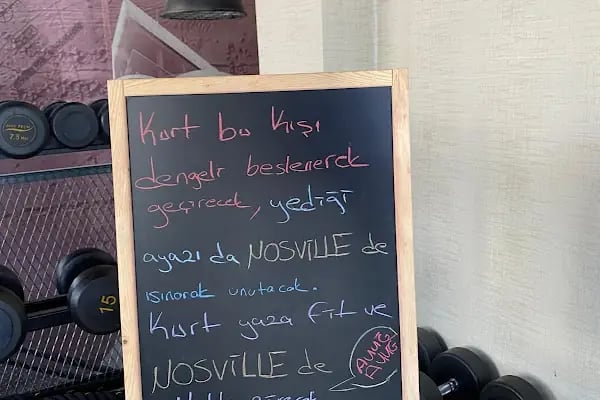 Kurt bu kışı
dengeli beslenerek
geçirecek, yediği
ayazı da NOSVİLLE de
ısınarak unutacak.
Kurt yaza fit ve
NOSVİLLE de
AUUĞ
AUUĞ
7.5
15